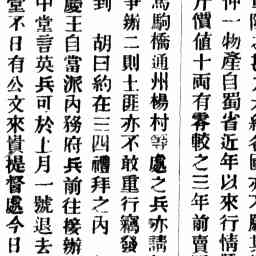 仲一物產自蜀省近年以來行情
斤價値十兩有零較之三年前賣
馬駒橋通州楊村等處之兵亦請
爭辦二則土匪亦不敢重行竊發
到　胡日約在三四禮拜之內
慶王自當派內務府兵前往接辦
中堂言英兵可於上月一號退去
堂不日有公文來貴提督處今日